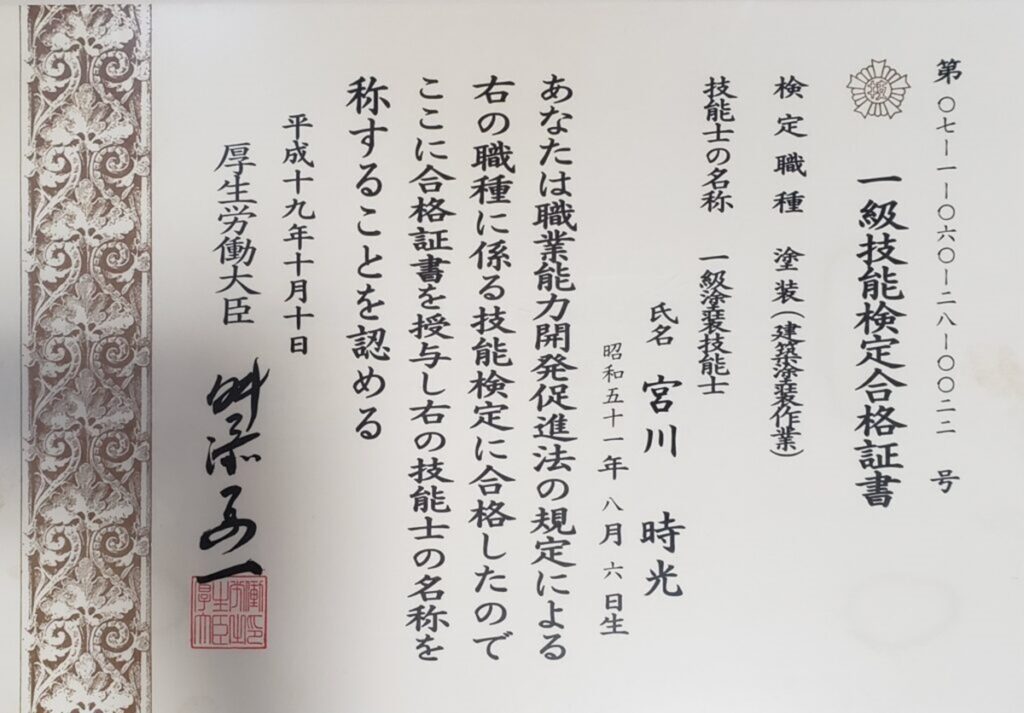 第〇七-一-〇六〇-二八-〇〇二二号
一級技能検定合格証書
検定職種 塗装(建築塗装作業)
技能士の名称 一級塗装技能士
氏名 宮川 時光
昭和五十一年八月六日生
あなたは職業能力開発促進法の規定による
右の職種に係る技能検定に合格したので
ここに合格証書を授与し右の技能士の名称を
称することを認める
平成十九年十月十日
厚生労働大臣 舛添要一